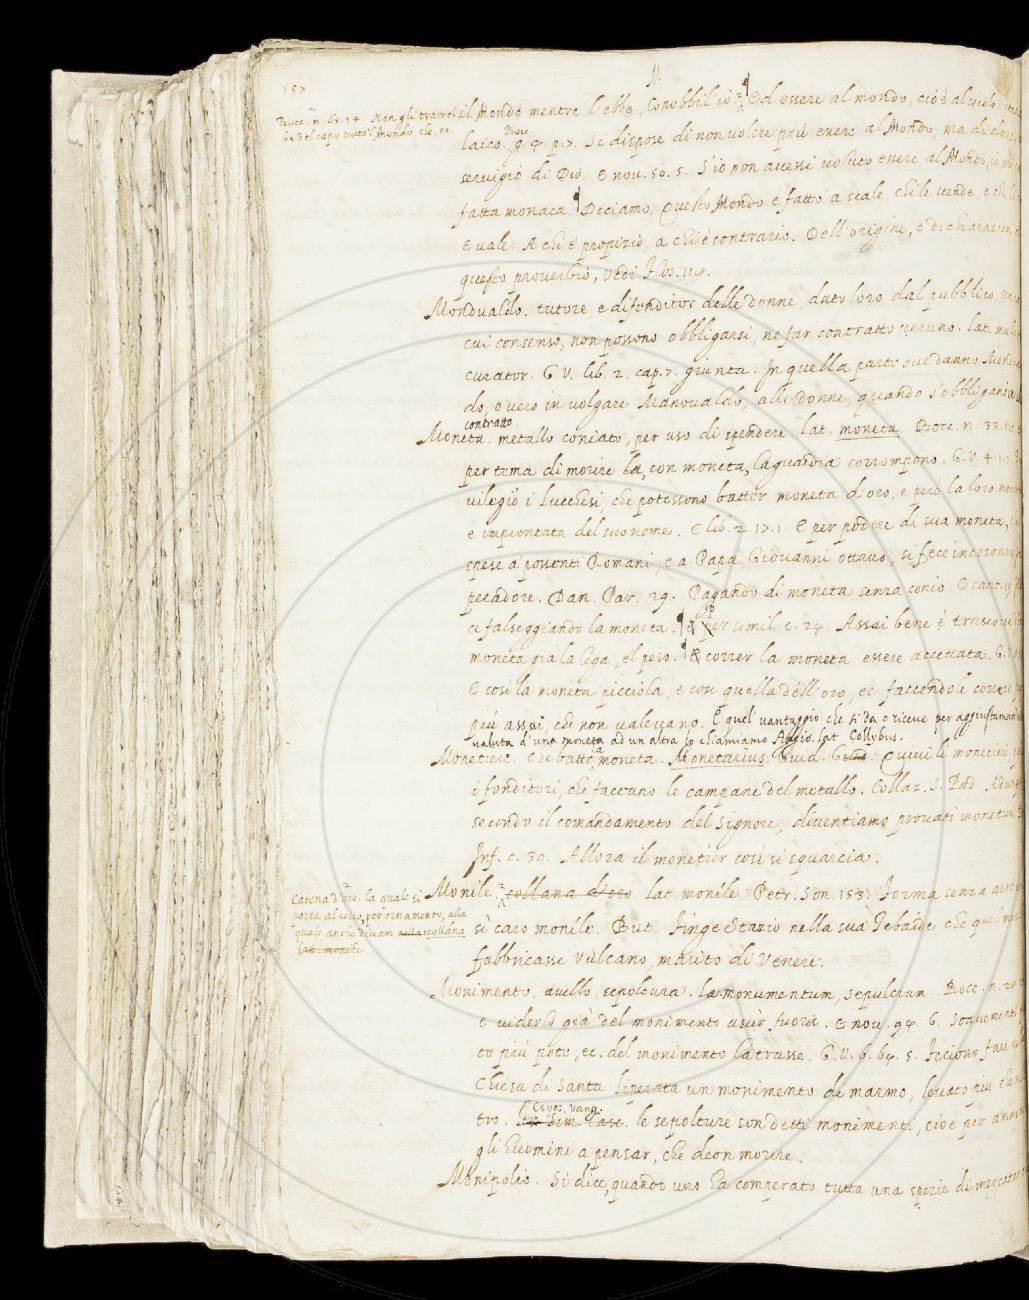 157
M.
Bocc. n. 65. 14. Non gli trarrebbe del capo tutto 'l Mondo, che, ec.
il Mondo mentre l'ebbe, Conobbil' io. Ed essere al mondo, cioè al secolo
laico. Bocc. g. 4. p. 7. Si dispose di non volere più essere al Mondo, ma di
servigio di Dio. E nov. 50. 5. S'io non avessi voluto essere al Mondo, io
fatta monaca. Diciamo. Questo Mondo è fatto a scale, chi le scende, e chi
e vale. A chi è propizio, a chi è contrario. Dell'origine, e dichiarazion
questo proverbio, vedi Flos. 118.
Mondualdo. tutore e difenditor delle donne, dato loro dal pubblico, senza
cui consenso, non possono obbligarsi, ne far contratto veruno. lat.
curator. G. V. lib. 2. cap. 7. giunta. In quella parte ove danno Mondual
do, overo in volgare Manovaldo, alle donne, quando s'obbligano in
contratto.
Moneta. metallo coniato, per uso di spendere lat. moneta. Bocc. n. 33.
per tema di morire, con moneta, la guardia corrompono. G. V. 4. 17.
vilegiò i Lucchesi, che potessono batter moneta d'oro, e però la loro moneta
è improntata del suo nome. E lib. 2. 17. 1. E per podere di sua moneta,
spese a' possenti Romani, e a Papa Giovanni ottavo, si fece incoronare
peradore. Dan. Par. 29. Pagando di moneta senza conio. E cant. 19
ce falseggiando la moneta. E per simil. c. 24. Assai bene è trascorsa
moneta già la lega, e'l peso. E correr la moneta essere accettata. G. V.
E così la moneta picciola, e così quella dell'oro, ec. faccendole correre
più assai, che non valevano. E quel vantaggio che si dà o riceve per aggiustamento
valuta d'una moneta ad un'altra lo chiamiamo Aggio. lat Collybus.
Monetiere. Che batte la moneta. Monetarius. Guid. G. Quivi li monetieri,
i fonditori, che faceano le campane del metallo. Collaz. S. Pad. Adunque
secondo il comandamento del Signore, diventiamo provati monetieri.
Inf. c. 30. Allora il monetier così si squarcia.
Catena d'oro. la quale si
porta al collo, per ornamento, alla
quale anche diciam collana
lat. monile
Monile. collana d'oro. lat. monile. Petr. Son. 153. Forma senza arte
sì caro monile. But. Finge Stazio nella sua Tebaide che quel
fabbricasse Vulcano, marito di Venere.
Monimento. avello, sepoltura. lat. monumentum, sepulcrum. Bocc. n. 20.
e viderlo già del monimento uscir fuora. E nov. 94. 6. Soavemente
to più poco, ec. del monimento la trasse. G. V. 6. 64. 5. Feciono fare
Chiesa di Santa Liperata un monimento di marmo, levato più che
tro. Espos. Vang. le sepolture son dette monimenti, cioè per
gli huomini a pensar, che deon morire.
Monipolio. Si dice, quando uno ha comperato tutta una spezie di mercatan